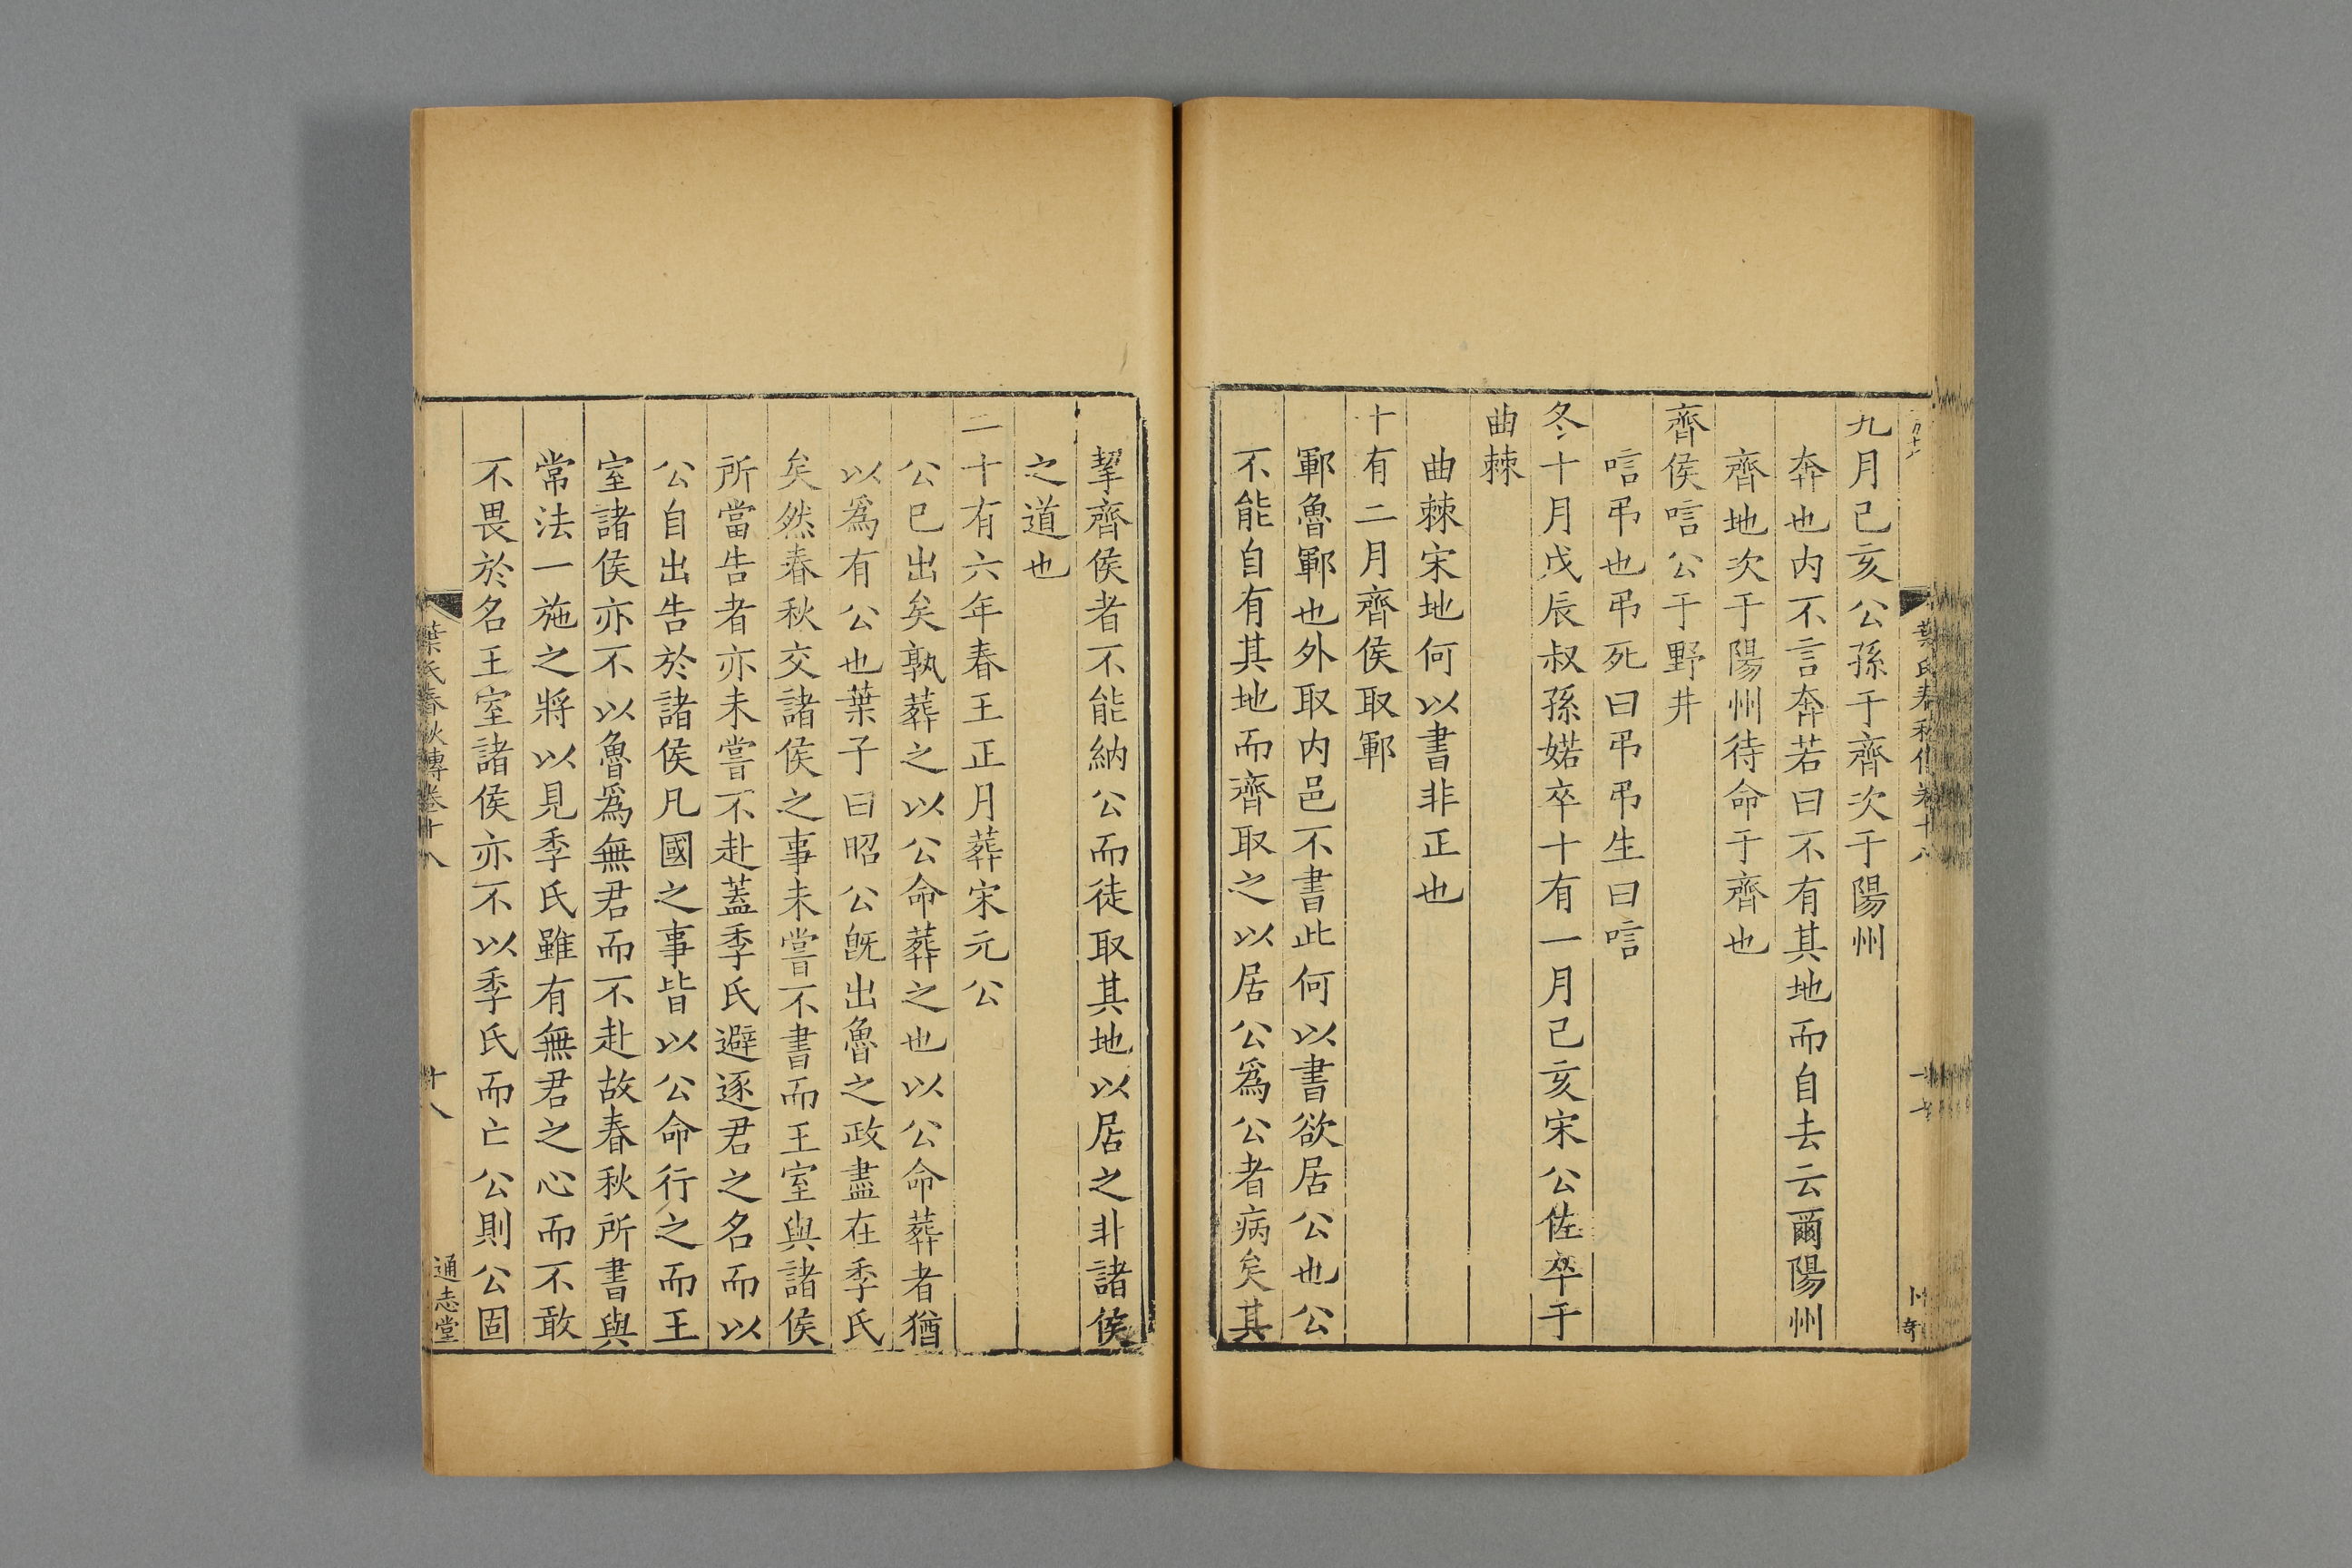 九月己亥公孫于齊次于陽州
奔也内不言奔若曰不有其地而自去云爾陽州
齊地次于陽州待命于齊也
齊侯唁公于野井
唁弔也弔死曰弔弔生曰唁
冬十月戊辰叔孫婼卒十有一月己亥宋公佐卒于
曲棘
曲棘宋地何以書非正也
十有二月齊侯取鄆
鄆魯鄆也外取内邑不書此何以書欲居公也公
不能自有其地而齊取之以居公爲公者病矣其
挈齊侯者不能納公而徒取其地以居之非諸侯
之道也
二十有六年春王正月葬宋元公
公已出矣孰葬之以公命葬之也以公命葬者猶
以爲有公也葉子曰昭公旣出魯之政盡在季氏
矣然春秋交諸侯之事未嘗不書而王室與諸侯
所當告者亦未嘗不赴蓋季氏避逐君之名而以
公自出告於諸侯凡國之事皆以公命行之而王
室諸侯亦不以魯爲無君而不赴故春秋所書與
常法一施之將以見季氏雖有無君之心而不敢
不畏於名王室諸侯亦不以季氏而亡公則公固
葉氏春秋傳卷十八
十八
通志堂